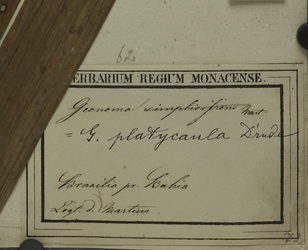 62
HERBARIUM REGIUM MONACENSE.
Geonoma simplicifrons Mart
= G. platycaula Drude
Brasilia pr. Bahia
Legt. d. Martius